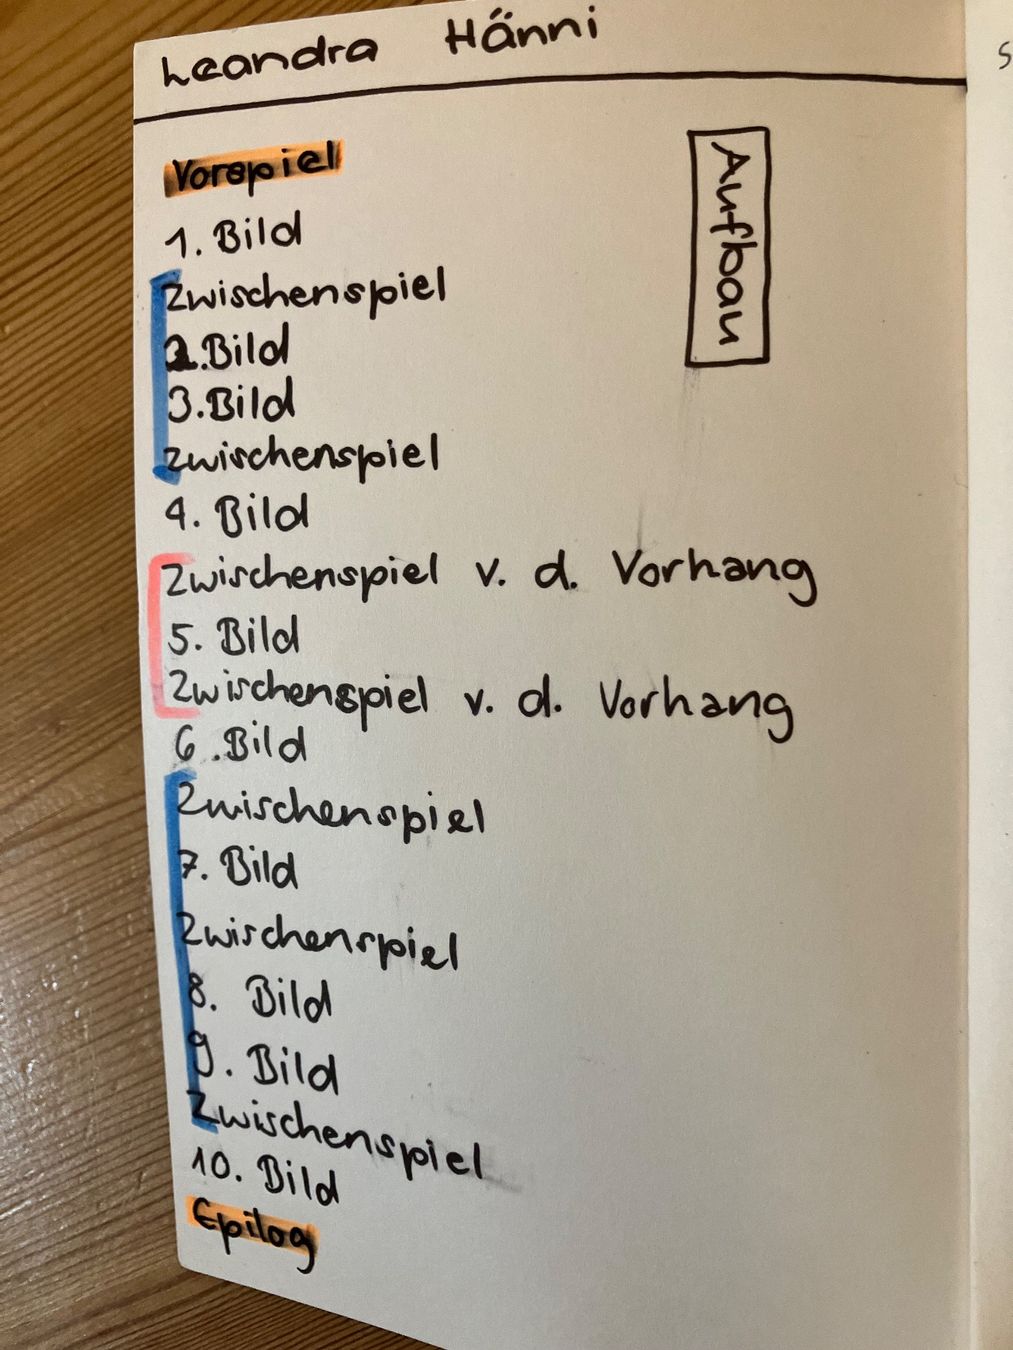 Leandra Hänni
Aufbau
Vorspiel
1. Bild
Zwischenspiel
2. Bild
3. Bild
Zwischenspiel
4. Bild
Zwischenspiel v. d. Vorhang
5. Bild
Zwischenspiel v. d. Vorhang
6. Bild
Zwischenspiel
7. Bild
Zwischenspiel
8. Bild
9. Bild
Zwischenspiel
10. Bild
Epilog